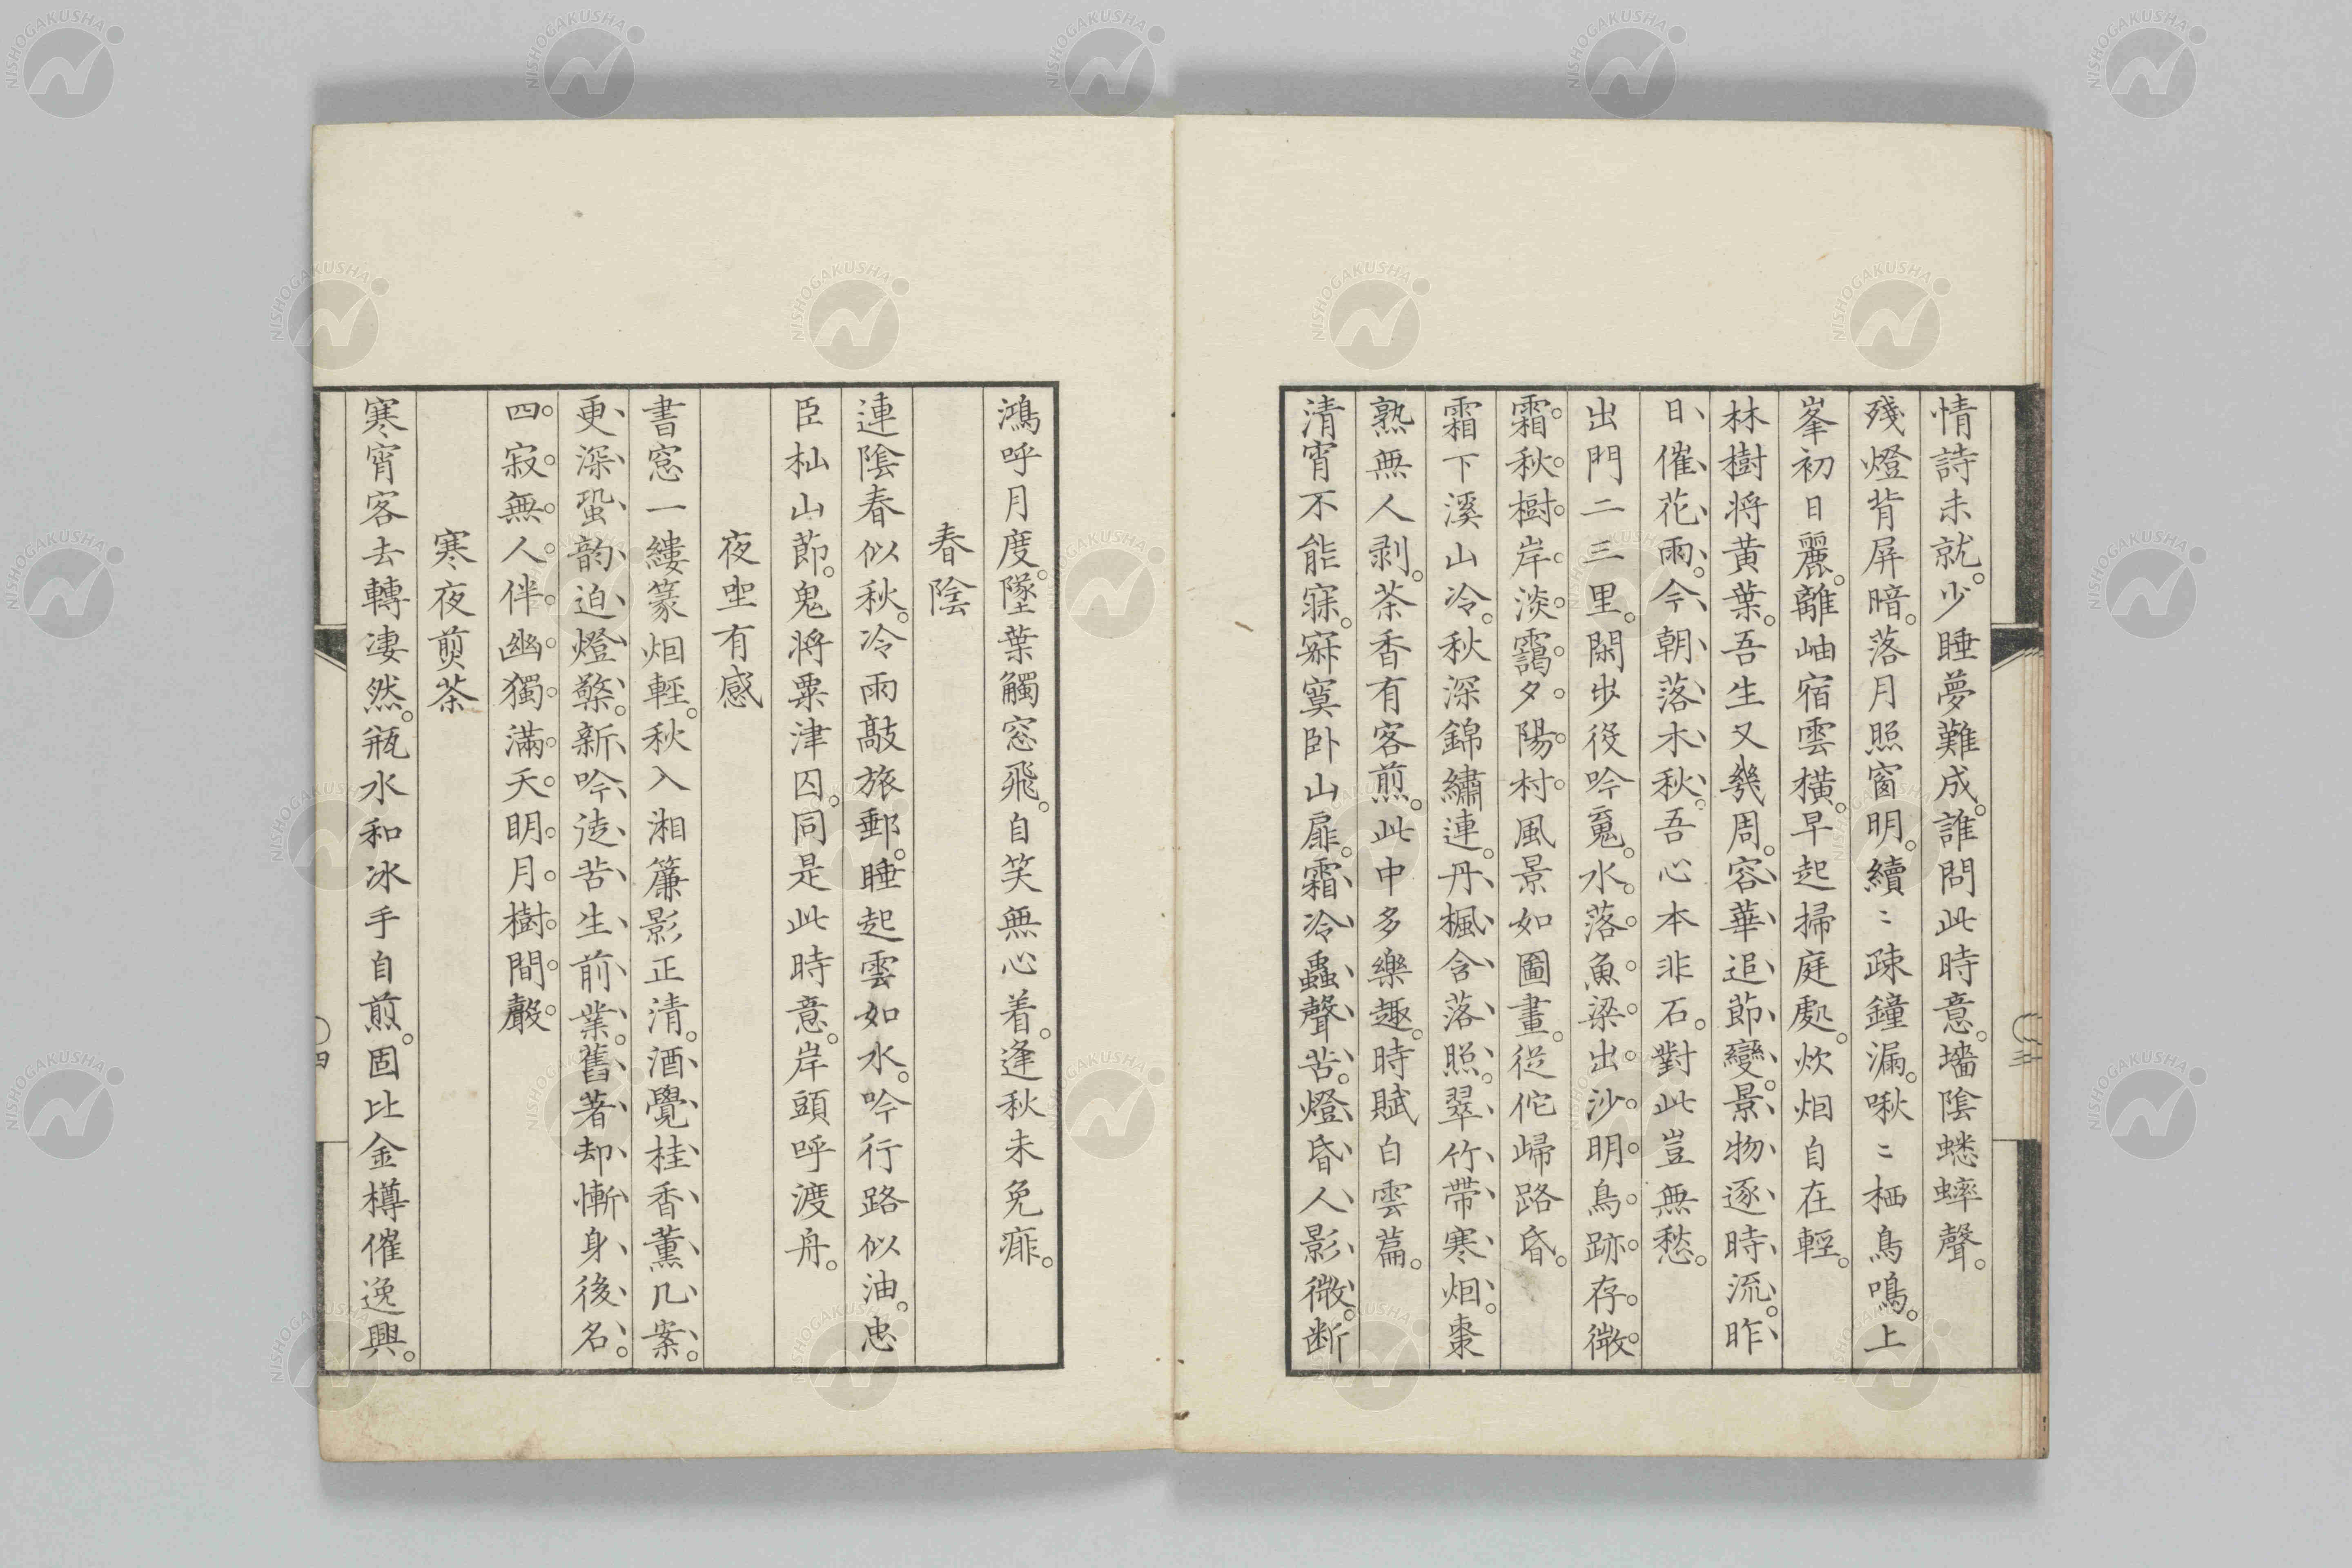 情詩未就。少睡夢難成。誰問此時意。墻陰蟋蟀聲。
殘燈背屏暗。落月照窗明。續〻疎鐘漏。啾〻栖鳥鳴。上
峯初日麗。離岫宿雲橫。早起掃庭處。炊烟自在輕。
林樹將黃葉。吾生又幾周。容華追節變。景物逐時流。昨
日催花雨。今朝落木秋。吾心本非石。對此豈無愁。
出門二三里。閑步役吟䰟。水落魚梁出。沙明鳥跡存。微
霜秋樹岸。淡靄夕陽村。風景如圖畫。從佗歸路昏。
霜下溪山冷。秋深錦繡連。丹楓含落照。翠竹帶寒烟。棗
熟無人剥。茶香有客煎。此中多樂趣。時賦白雲篇。
清宵不能寐。寂寞卧山扉。霜冷蟲聲苦。燈昏人影微。断
鴻呼月度。墜葉觸窓飛。自笑無心着。逢秋未免痱。
春陰
連陰春似秋。冷雨敲旅郵。睡起雲如水。吟行路似油。忠
臣杣山節。鬼將粟津囚。同是此時意。岸頭呼渡舟。
夜坐有感
書窓一縷篆烟輕。秋入湘簾影正清。酒覺桂香薰几案。
更深蛩韵迫燈檠。新吟徒苦生前業。舊著却慚身後名。
四寂無人伴幽獨。滿天明月樹間聲
寒夜煎茶
寒宵客去轉凄然。瓶水和冰手自煎。固比金樽催逸興。
三
四
NISHOGAKUSHA